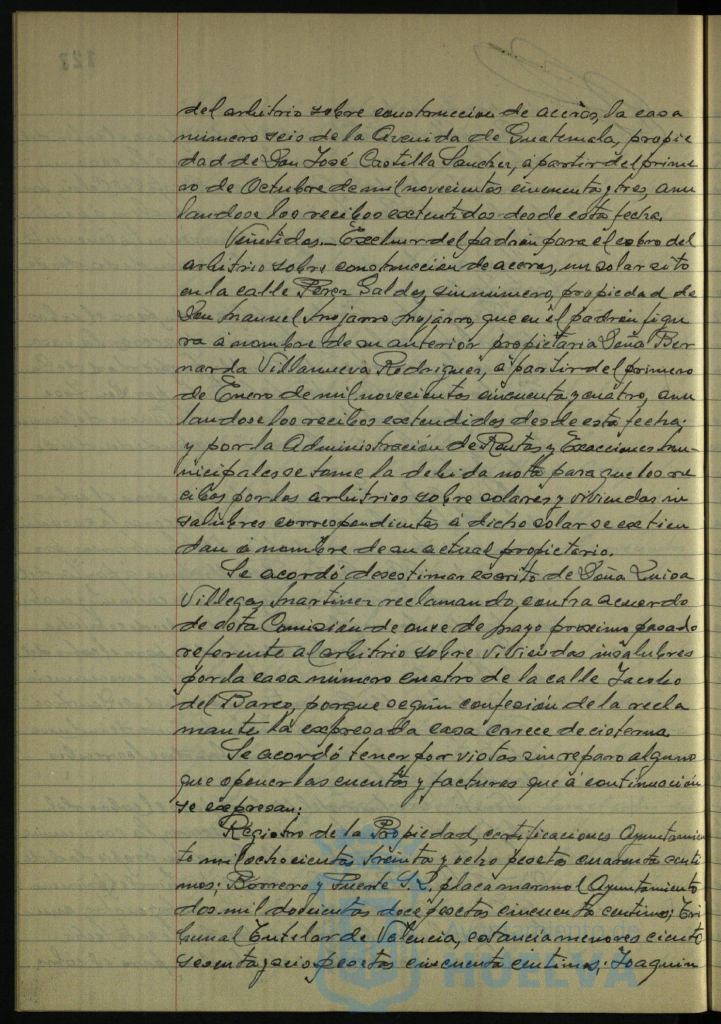 del arbitrio sobre construccion de aceras, la casa
número seis de la Avenida de Guatemala, propie
dad de Don José Castilla Sanchez, á partir del prime
ro de Octubre de mil novecientos cincuenta y tres, anu
landose los recibos extentidos desde esta fecha.
Veintidos.- Excluir del padrón para el cobro del
arbitrio sobre construcción de aceras, un solar sito
en la calle Perez Galdos, sin número, propiedad de
Don Manuel Mojarro Mojarro, que en el padron figu
ra á nombre de su anterior propietaria Doña Ber
narda Villanueva Rodriguez, á partir del primero
de Enero de mil novecientos cincuenta y cuatro, anu
landose los recibos extendidos desde esta fecha;
y por la Administración de Rentas y Exacciones Mu-
nicipales se tome la debida nota para que los re
cibos por los arbitrios sobre solares y viviendas in
salubres correspondientes á dicho solar se extien
dan á nombre de su actual propietario.
Se acordó desestimar escrito de Doña Luisa
Villegas Martinez reclamando contra acuerdo
de esta Comisión de once de Mayo proximo pasado
referente al arbitrio sobre viviendas insalubres
por la casa número cuatro de la calle Jacobo
del Barco, porque según confesión de la recla
mante la expresada casa carece de cisterna.
Se acordó tener por vistas sin reparo alguno
que oponer las cuentas y facturas que á continuación
se expresan:
Registro de la Propiedad, certificaciones Ayuntamien
to mil ochocientas treinta y ocho pesetas cuarenta centi
mos; Borrero y Fuente S.L. placa marmol Ayuntamiento
dos mil doscientas doce pesetas cincuenta centimos; Tri
bunal Tutelar de Valencia, estancia menores ciento
sesenta y seis pesetas cincuenta centimos; Joaquin
HUELVA